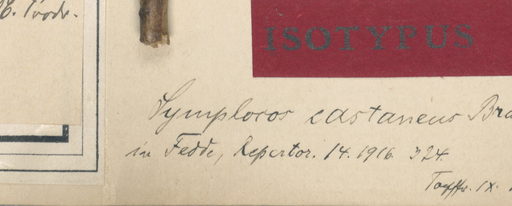 Prodr.
ISOTYPUS
Symplocos castaneus Bra
in Fedde, Repertor. 14. 1916 324.
IX.